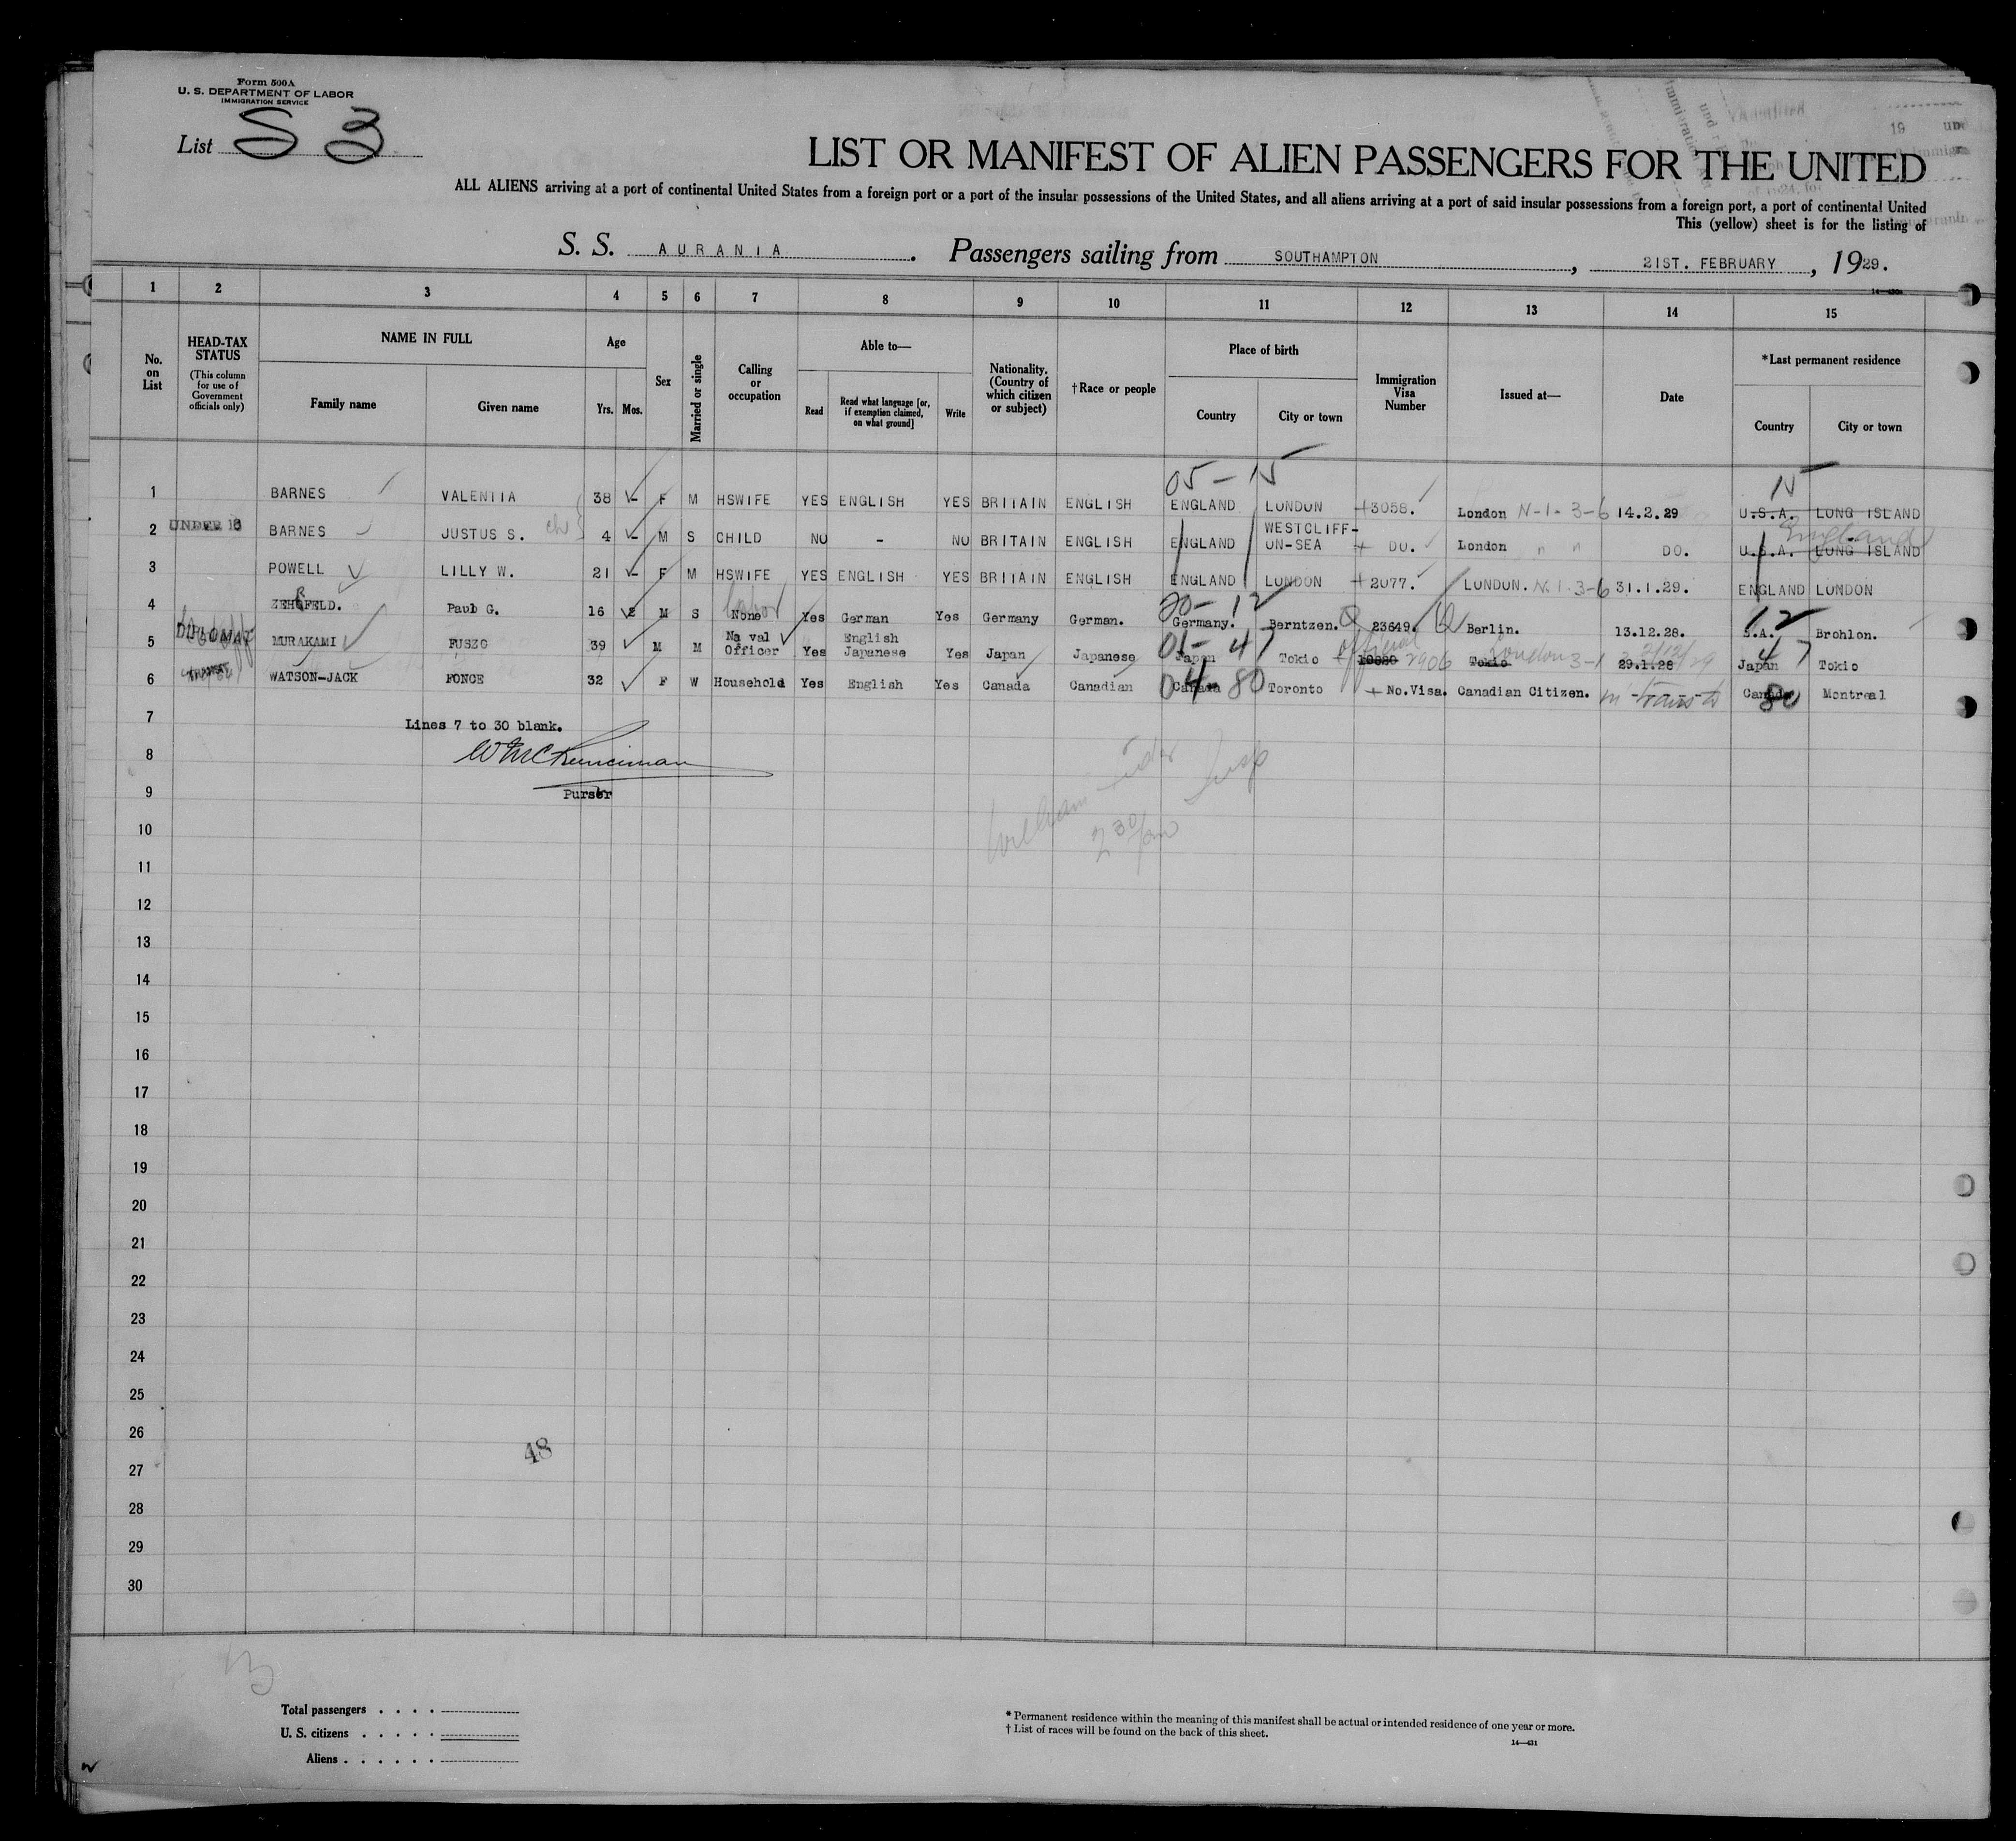 Form 500A
U. S. DEPARTMENT OF LABOR
IMMIGRATION SERVICE
List S 3
LIST OR MANIFEST OF ALIEN PASSENGERS FOR THE UNITED
ALL ALIENS arriving at a port of continental United States from a foreign port or a port of the insular possessions of the United States, and all aliens arriving at a port of said insular possessions from a foreign port, a port of continental United
This (yellow) sheet is for the listing of
S. S. AURANIA. Passengers sailing from SOUTHAMPTON, 21ST. FEBRUARY, 1929.
1 2 3 4 5 6 7 8 9 10 11 12 13 14 15
No. on List
HEAD-TAX STATUS
(This column for use of Government officials only)
NAME IN FULL
Family name Given name
Age
Yrs. Mos.
Sex
Married or single
Calling or occupation
Able to—
Read
Read what language [or, if exemption claimed, on what ground]
Write
Nationality. (Country of which citizen or subject)
†Race or people
Place of birth
Country City or town
Immigration Visa Number
Issued at—
Date
*Last permanent residence
Country City or town
05 - 15 15
1 BARNES VALENTIA 38 - F M HSWIFE YES ENGLISH YES BRITAIN ENGLISH ENGLAND LONDON +3058. London N-1-3-6 14.2.29 U.S.A. LONG ISLAND
England
2 UNDER 16 BARNES JUSTUS S. ch 4 - M S CHILD NO - NO BRITAIN ENGLISH ENGLAND WESTCLIFF-ON-SEA + DO. London " " DO. U.S.A. LONG ISLAND
3 POWELL LILLY W. 21 - F M HSWIFE YES ENGLISH YES BRITAIN ENGLISH ENGLAND LONDON +2077. LONDON. N.1.3-6 31.1.29. ENGLAND LONDON
20- 12 12
4 Paul G. 16 M S None labor Yes German Yes Germany German. Germany. Berntzen. Q 23649. Q Berlin. 13.12.28. Brohlon.
01- 47 official 47
5 DIPLOMAT MURAKAMI FUSZO 39 M M Na val Officer Yes English Japanese Yes Japan Japanese Japan Tokio 2906 Tokio London 3-1 29.1.28 Japan Tokio
04- 80 80
6 WATSON-JACK FONCE 32 F W Household Yes English Yes Canada Canadian Canada Toronto + No.Visa. Canadian Citizen. in transit Canada Montreal
7 Lines 7 to 30 blank.
8
9 Purser
10
11
12
13
14
15
16
17
18
19
20
21
22
23
24
25
26
27
28
29
30
William
2 30 pm
Insp
48
Total passengers
U. S. citizens
Aliens
* Permanent residence within the meaning of this manifest shall be actual or intended residence of one year or more.
† List of races will be found on the back of this sheet.
14—431